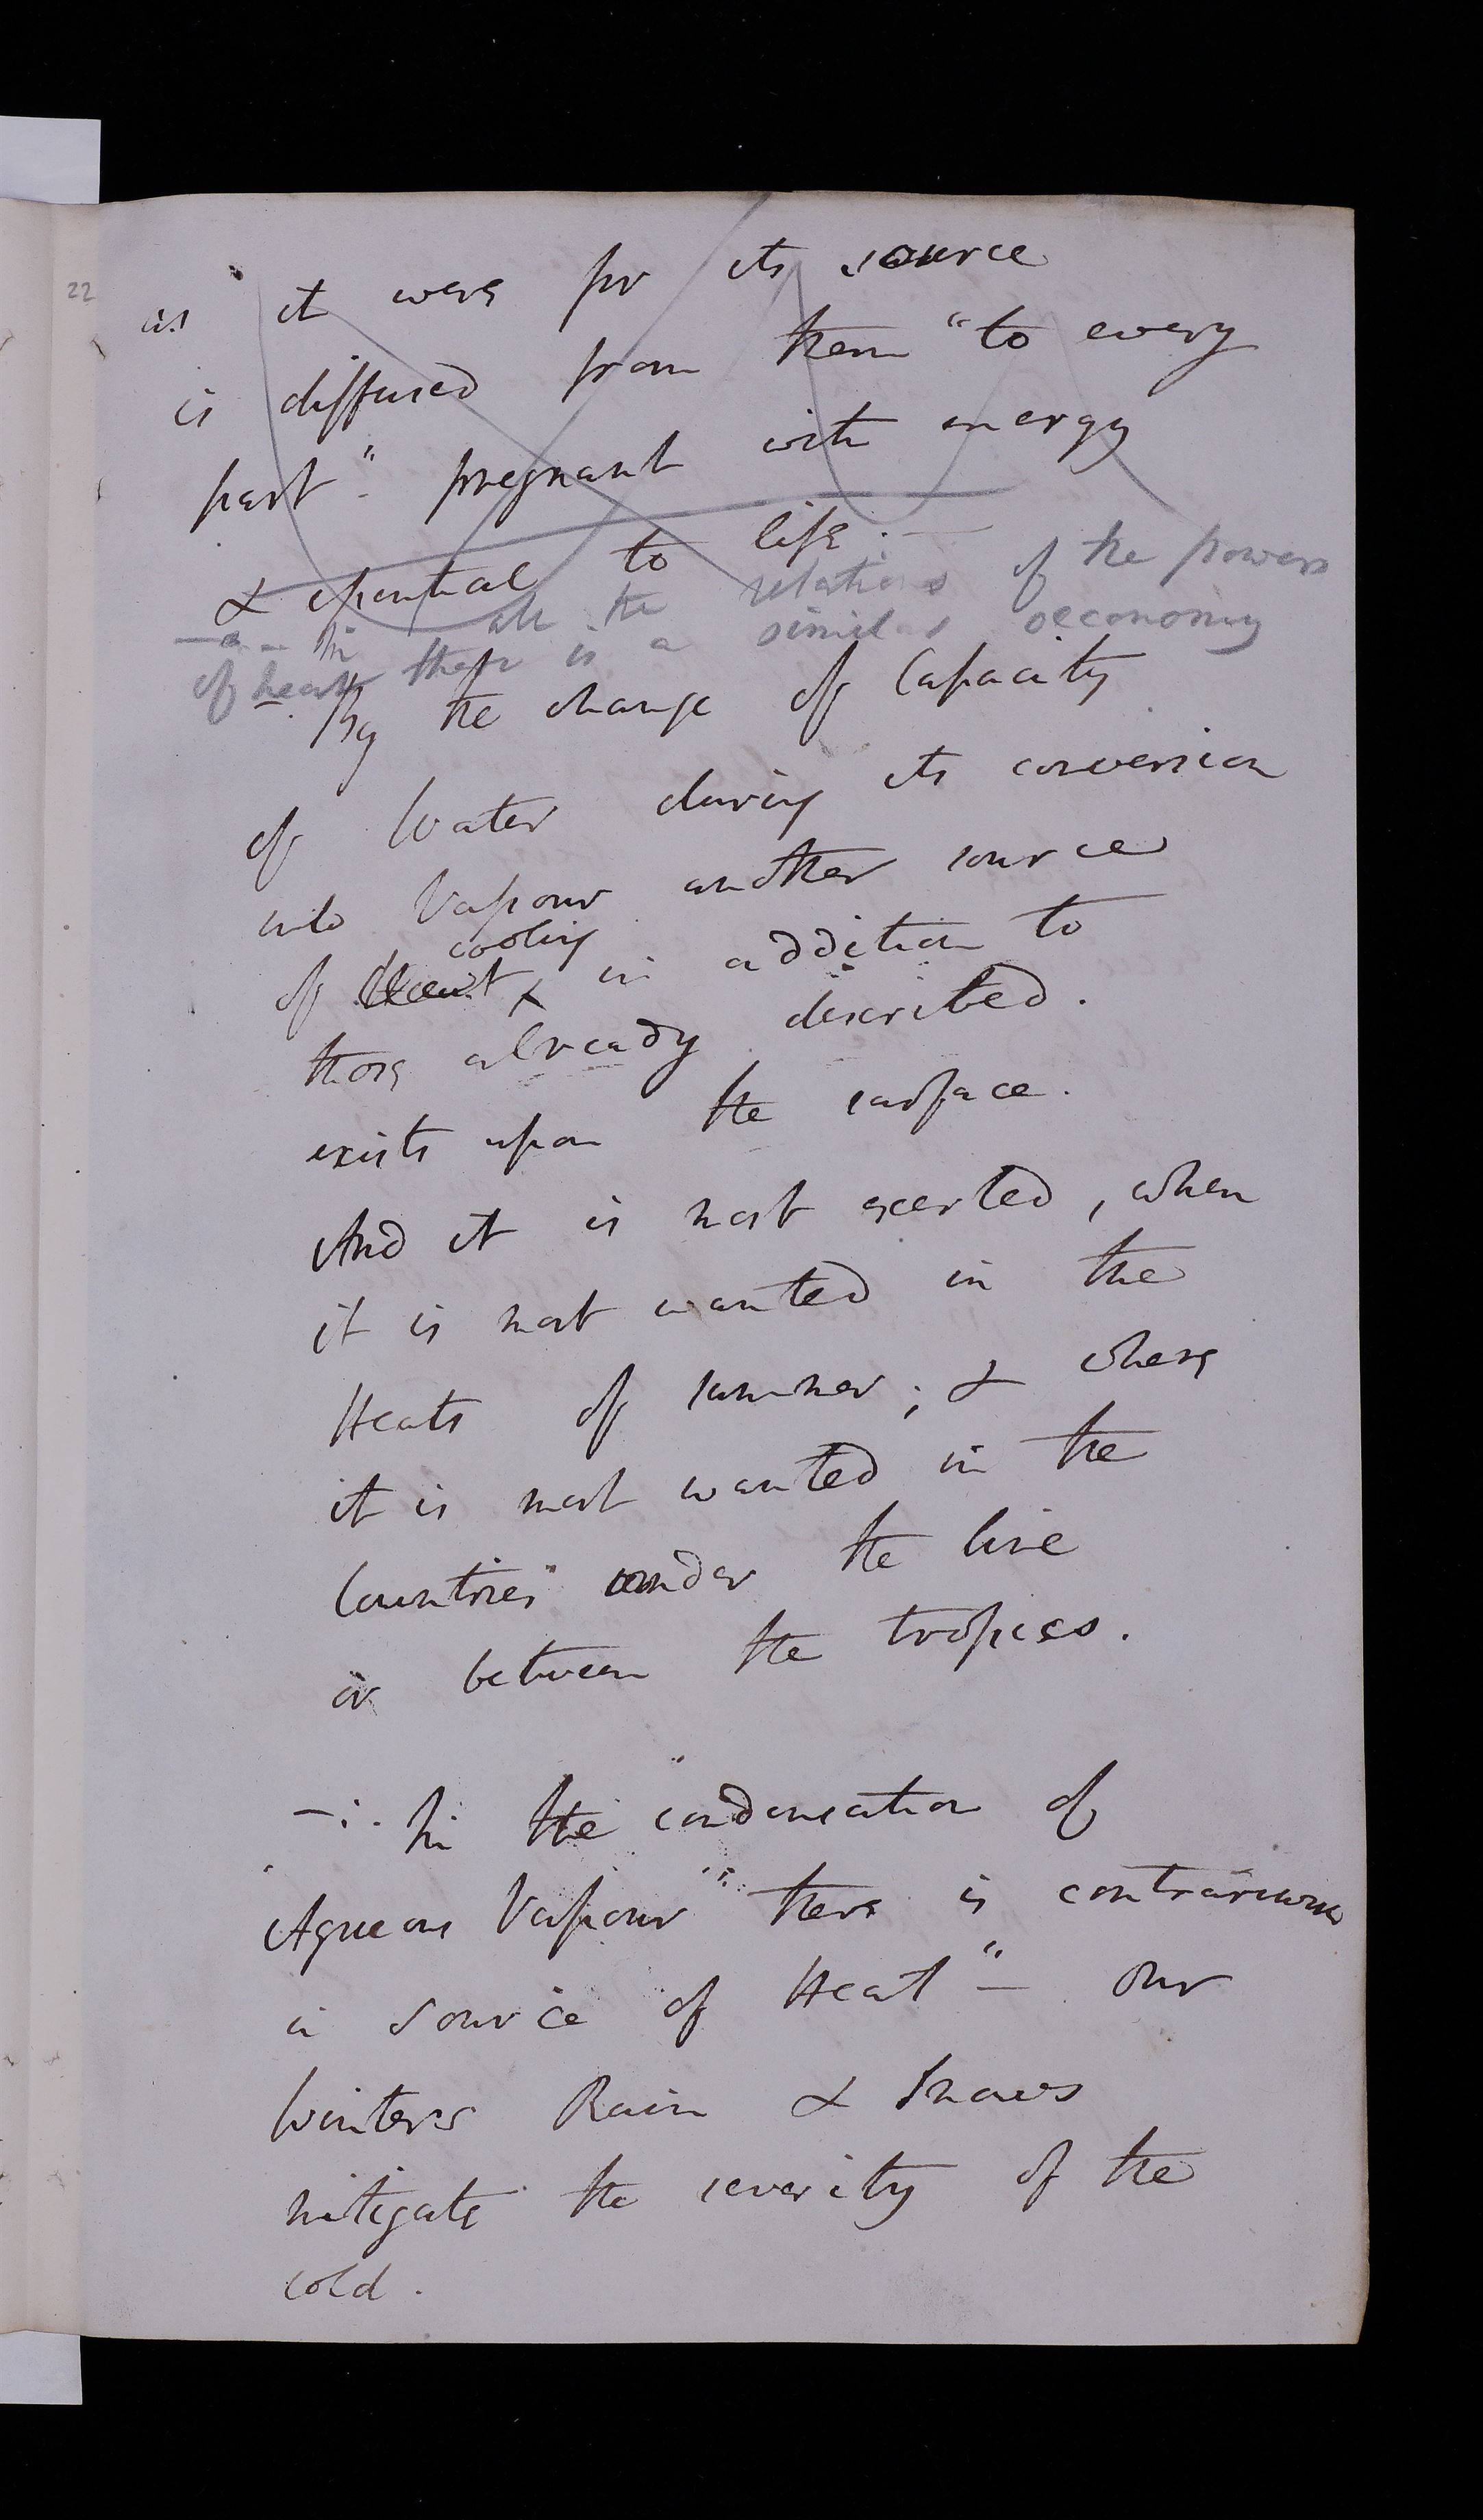 22
as it were for its source
is diffused from them "to every
part". pregnant with energy
& essential to life. —
— In all the relations of the powers
of heat there is a similar oeconomy
By the change of Capacity
of Water during its conversion
into Vapour another source
cooling
of Heat & in addition to
those already described.
exists upon the surface.
And it is most exerted, when
it is most wanted in the
Heats of summer; & where
it is most wanted in the
Countries under the line
or between the tropics.
—:. In the condensation of
Aqueous Vapour "there is contrariwise
a source of Heat" — Our
Winters Rain & Snows
mitigate the severity of the
cold.